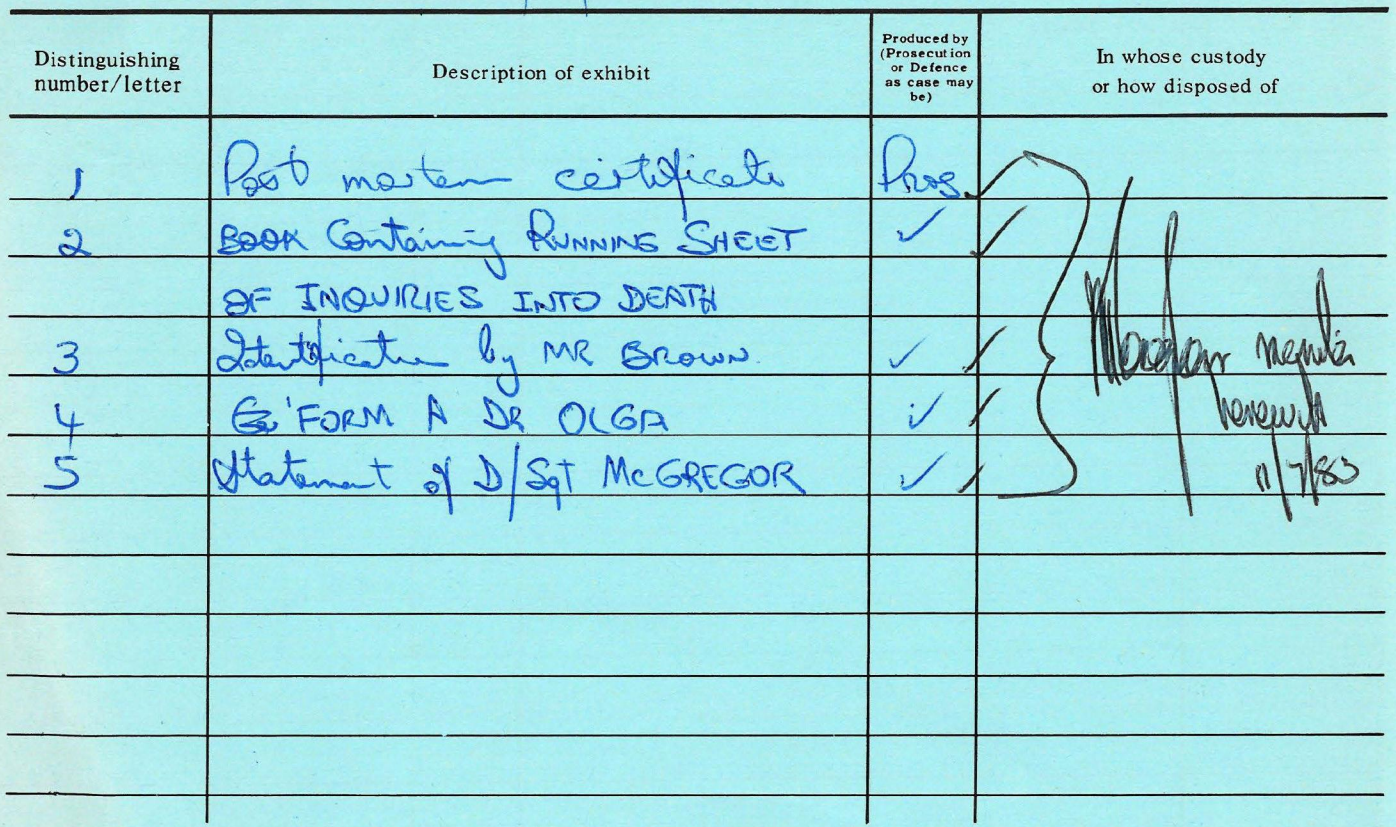 Distinguishing number/letter
Description of exhibit
Produced by (Prosecution or Defence as case may be)
In whose custody or how disposed of
1 Post mortem certificate Pros.
2 BOOK Containing RUNNING SHEET
OF INQUIRIES INTO DEATH
3 Identification by MR BROWN.
4 FORM A DR OLGA
5 Statement of D/Sgt McGREGOR
herewith
11/7/83